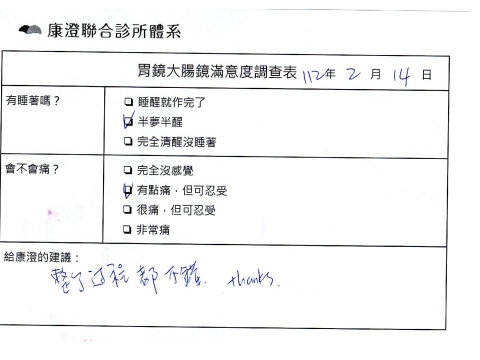 康澄聯合診所體系
胃鏡大腸鏡滿意度調查表 112年 2 月 14 日
有睡著嗎？
❑ 睡醒就作完了
☑ 半夢半醒
❑ 完全清醒沒睡著
會不會痛？
❑ 完全沒感覺
☑ 有點痛，但可忍受
❑ 很痛，但可忍受
❑ 非常痛
給康澄的建議：
整個過程都不錯. thanks.